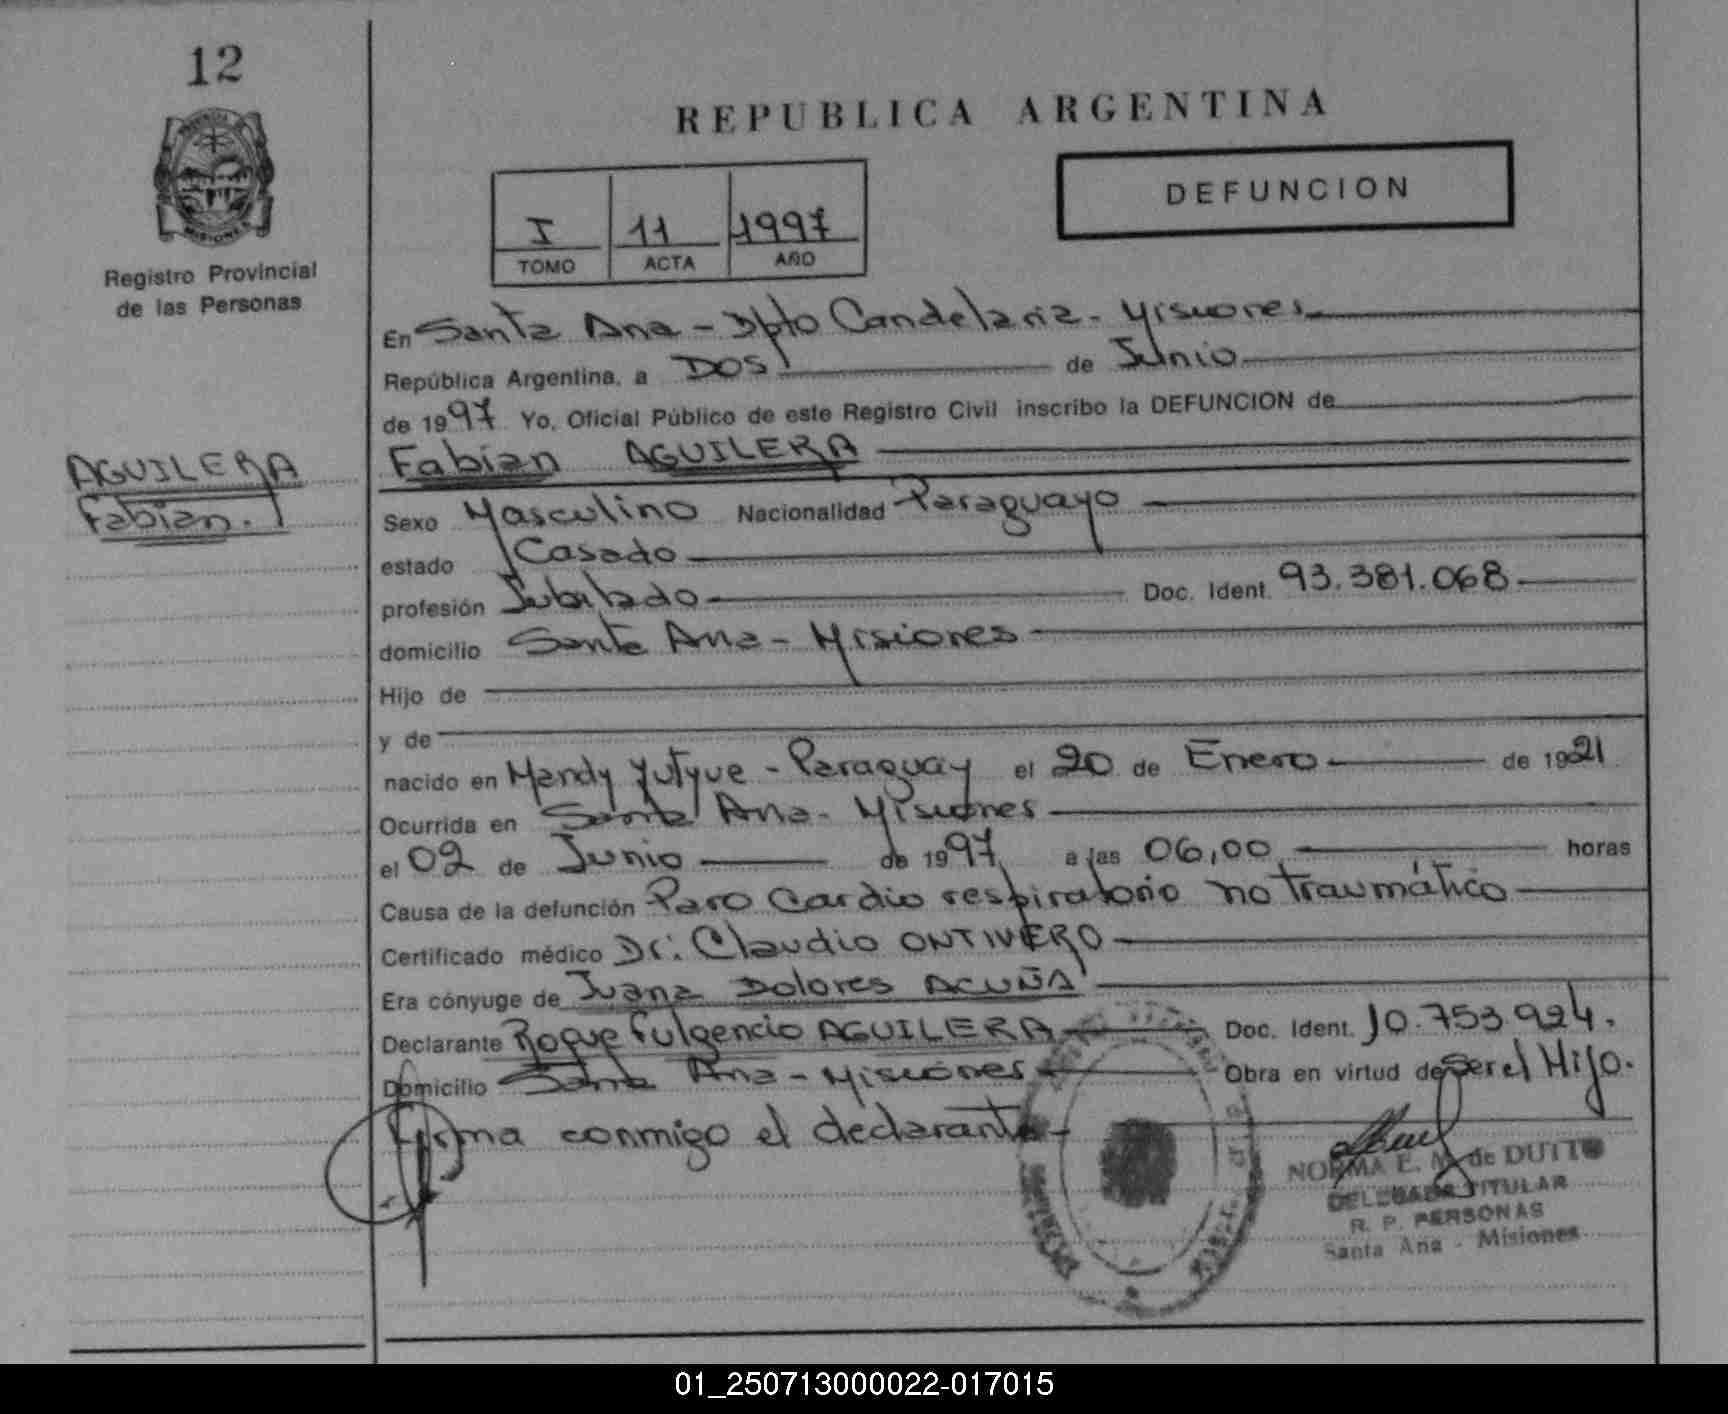 12
REPUBLICA ARGENTINA
DEFUNCION
I 11 1997
TOMO ACTA AÑO
MISIONES
Registro Provincial
de las Personas
En Santa Ana - Dpto Candelaria - Misiones
República Argentina, a DOS de Junio
de 1997 Yo, Oficial Público de este Registro Civil inscribo la DEFUNCION de
AGUILERA
Fabian.
Fabian AGUILERA
Sexo Masculino Nacionalidad Paraguayo
estado Casado
profesión Jubilado Doc. Ident. 93.381.068
domicilio Santa Ana - Misiones
Hijo de
y de
nacido en Mandy Yutyue - Paraguay el 20 de Enero de 1921
Ocurrida en Santa Ana - Misiones
el 02 de Junio de 1997 a las 06,00 horas
Causa de la defunción Paro Cardio respiratorio no traumático
Certificado médico Dr: Claudio ONTIVERO
Era cónyuge de Juana Dolores ACUÑA
Declarante Roque Fulgencio AGUILERA Doc. Ident. 10.753.924.
Domicilio Santa Ana - Misiones Obra en virtud de ser el Hijo.
Firma conmigo el declarante -
NORMA E. M. de DUTTO
DELEGADA TITULAR
R. P. PERSONAS
Santa Ana - Misiones
01_250713000022-017015